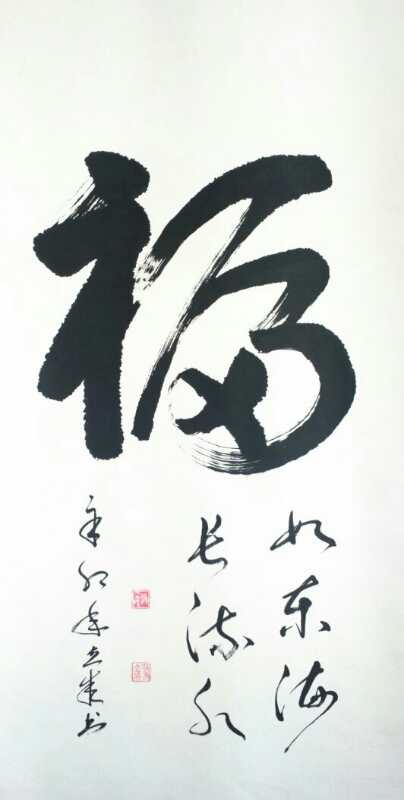 福
如东海
长流水
辛卯年 书